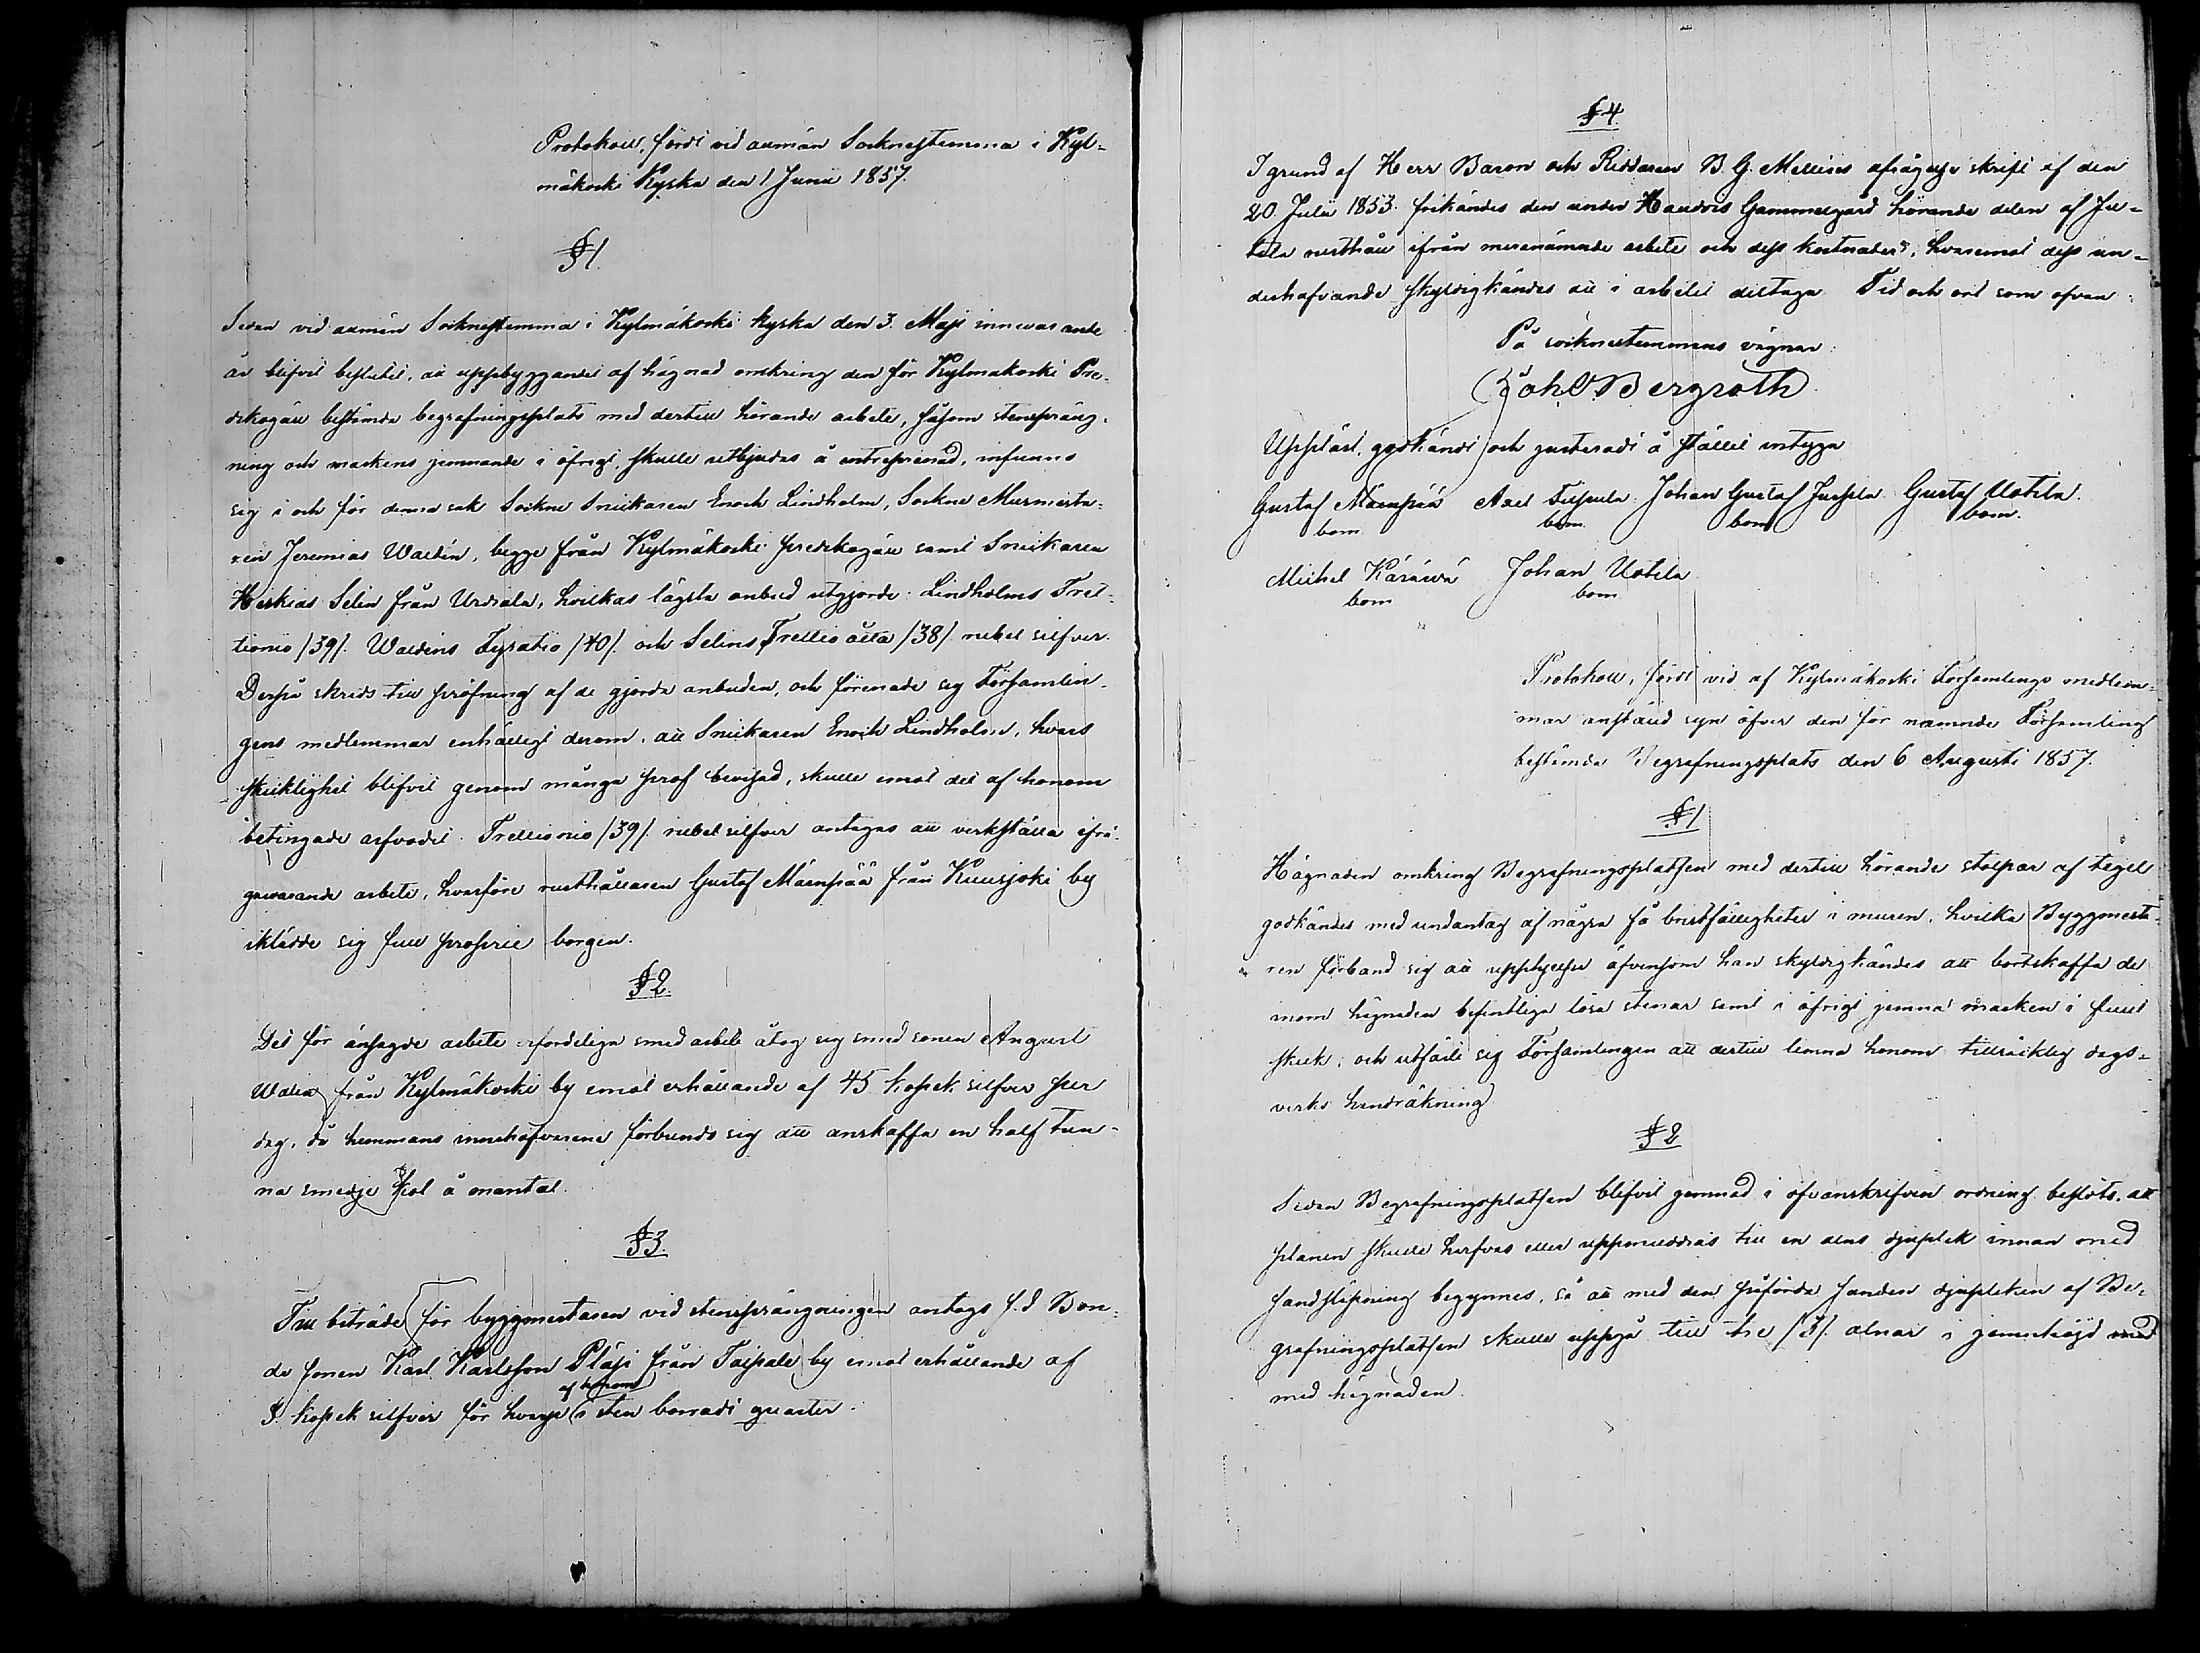 Protokoll, fördt vid allmän Socknestemma i Kyl-
mäkoski Kyrka den 1 Junii 1857.
§1.
Sedan vid allmän Socknestemma i Kylmäkoski kyrka den 3. Maji innevarande
år blifvit beslutit, att uppbyggandet af hägnad omkring den för Kylmäkoski Pre-
dikogäll bestämda begrafningsplats med dertill hörande arbete, såsom stenspräng-
ning och markens jemnande i öfrigt, skulle utbjudas å entreprenad, infunno
sig i och för denna sak Sockne Snickaren Enoch Lindholm, Sockne Murmesta-
ren Jeremias Waldén, begge från Kylmäkoski predikogäll samt Snickaren
Heskias Selin från Urdiala, hvilkas lägsta anbud utgjorde: Lindholms Tret-
tionio /39/. Waldéns Fyratio /40/. och Selins Trettio åtta /38/. rubel silfver.
Derpå skreds till pröfning af de gjorda anbuden, och förenade sig Församlin-
gens medlemmar enhälligt derom, att Snickaren Enoch Lindholm, hvars
skicklighet blifvit genom många prof bevisad, skulle emot det af honom
betingade arfvodet Trettionio /39/. rubel silfver antagas att verkställa ifrå-
gavarande arbete, hvarföre rusthållaren Gustaf Mäenpää från Kuurjoki by
iklädde sig full proprie borgen.
§2.
Det för ansagde arbete erforderliga smed arbete åtog sig smed sonen August
Walin från Kylmäkoski by emot erhållande af 45 kopek silfver per
dag, då hemmans innehafvarena förbundo sig att anskaffa en half tun-
na smedje kol å mantal.
§3
Till biträde för byggmestaren vid stensprängningen antogs f.d Bon-
de sonen Karl Karlsson Pläsi från Taipale by emot erhållande af
3. kopek silfver för hvarje af honom i sten borradt quarter.
§4.
I grund af Herr Baron och Riddaren B. G. Mellins afsägelse skrift af den
20 Julii 1853. frikändes den under Haudois Gammelgård hörande delen af Ju-
tila rusthåll ifrån meranämnde arbete och dess kostnader, hvaremot dess un-
derhafvande skyldigkändes att i arbetet deltaga. Tid och ort som ofvan.
På socknestemmans vägnar:
Joh. O Bergroth
Uppläst, godkändt och justeradt å stället intyga
Gustaf Mäenpää Axel Tulpula Johan Gustaf Juspla Gustaf Uotila.
bom bom bom bom.
Michel Käräwä Johan Uotila
bom bom
Protokoll, fördt vid af Kylmäkoski Församlings medlem-
mar anstäld syn öfver den för nämnde Församling
bestämda Begrafningsplats den 6 Augusti 1857.
§1
Hägnaden omkring Begrafningsplatsen med dertill hörande stolpar af tegel
godkändes med undantag af några få bristfälligheter i muren, hvilka Byggmesta-
ren förband sig att upphjelpa äfvensom han skyldigkändes att bortskaffa de
inom hägnaden befintliga lösa stenar samt i öfrigt jemna marken i fullt
skick; och utfäste sig Församlingen att dertill lemna honom tillräcklig dags-
verks handräkning
§2
Sedan Begrafningsplatsen blifvit jemnad i ofvanskrifven ordning beslöts, att
planen skulle harfvas eller uppmuddras till en alns djuplek innan med
sandsläpning begynnes, så att med den påförda sanden djupleken af Be-
grafningsplatsen skulle uppgå till tre /3/. alnar i jemnhöjd med
med hägnaden.